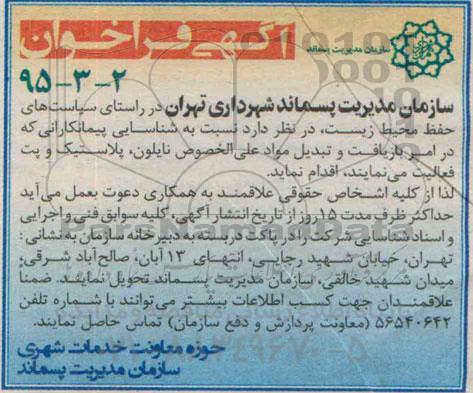 سازمان مدیریت پسماند
آگهی فراخوان
۹۵-۳-۲
سازمان مدیریت پسماند شهرداری تهران در راستای سیاست‌های
حفظ محیط زیست، در نظر دارد نسبت به شناسایی پیمانکارانی که
در امر بازیافت و تبدیل مواد علی‌الخصوص نایلون، پلاستیک و پت
فعالیت می‌نمایند، اقدام نماید.
لذا از کلیه اشخاص حقوقی علاقمند به همکاری دعوت بعمل می‌آید
حداکثر ظرف مدت ۱۵ روز از تاریخ انتشار آگهی، کلیه سوابق فنی و اجرایی
و اسناد شناسایی شرکت را در پاکت دربسته به دبیرخانه سازمان به نشانی:
تهران، خیابان شهید رجایی، انتهای ۱۳ آبان، صالح‌آباد شرقی،
میدان شهید خالقی، سازمان مدیریت پسماند تحویل نمایند. ضمنا
علاقمندان جهت کسب اطلاعات بیشتر می‌توانند با شماره تلفن
۵۶۵۴۰۶۴۲ (معاونت پردازش و دفع سازمان) تماس حاصل نمایند.
حوزه معاونت خدمات شهری
سازمان مدیریت پسماند